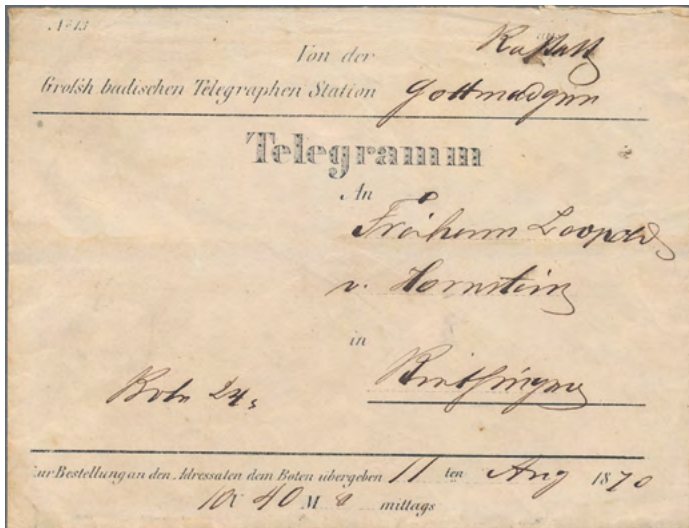 No 13
aus Rastatt
Von der
Großh badischen Telegraphen Station Gottmadgen
Telegramm
An
Freiherrn Leopold
v. Hornstein
in
Binthingen
Bote 24
zur Bestellung an den Adressaten dem Boten übergeben 11 ten Aug 1870
10 U 40 M mittags